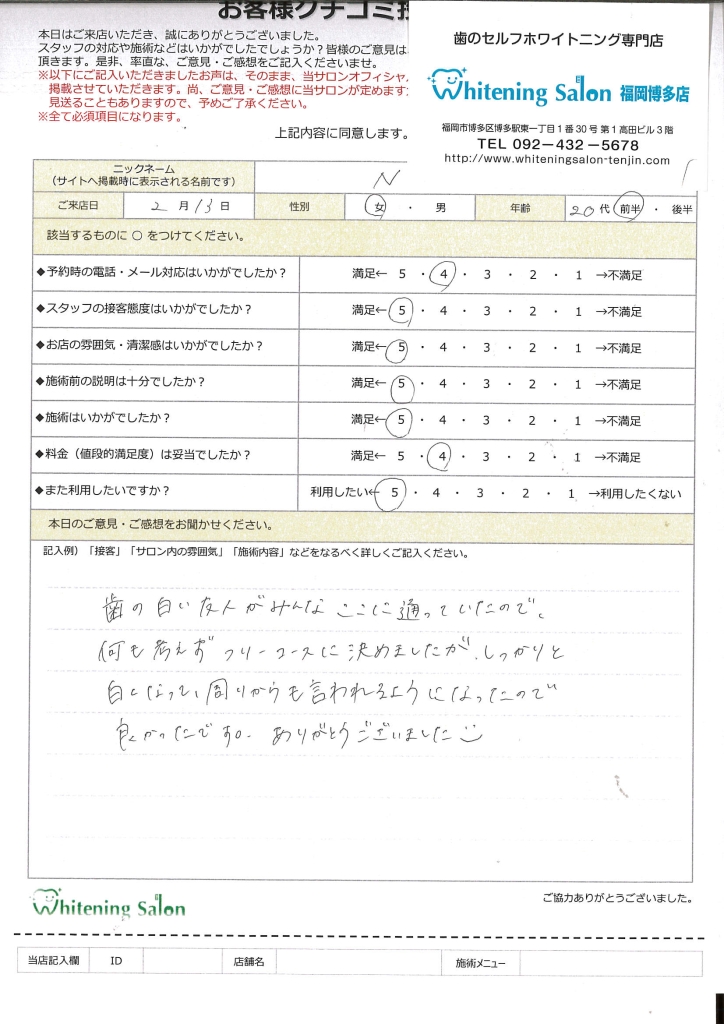 お客様クチコミ
本日はご来店いただき、誠にありがとうございました。
スタッフの対応や施術などはいかがでしたでしょうか？皆様のご意見は
頂きます。是非、率直な、ご意見・ご感想をご記入くださいませ。
※以下にご記入いただきましたお声は、そのまま、当サロンオフィシャ
掲載させていただきます。尚、ご意見・ご感想に当サロンが定めます
見送ることもありますので、予めご了承ください。
※全て必須項目になります。
上記内容に同意します。
歯のセルフホワイトニング専門店
Whitening Salon 福岡博多店
福岡市博多区博多駅東一丁目1番30号 第1高田ビル3階
TEL 092－432－5678
http://www.whiteningsalon-tenjin.com
ニックネーム
（サイトへ掲載時に表示される名前です）
N
ご来店日 2 月 13 日 性別 女 ・ 男 年齢 20 代 前半 ・ 後半
該当するものに ○ をつけてください。
◆予約時の電話・メール対応はいかがでしたか？ 満足← 5 ・ 4 ・ 3 ・ 2 ・ 1 →不満足
◆スタッフの接客態度はいかがでしたか？ 満足← 5 ・ 4 ・ 3 ・ 2 ・ 1 →不満足
◆お店の雰囲気・清潔感はいかがでしたか？ 満足← 5 ・ 4 ・ 3 ・ 2 ・ 1 →不満足
◆施術前の説明は十分でしたか？ 満足← 5 ・ 4 ・ 3 ・ 2 ・ 1 →不満足
◆施術はいかがでしたか？ 満足← 5 ・ 4 ・ 3 ・ 2 ・ 1 →不満足
◆料金（値段的満足度）は妥当でしたか？ 満足← 5 ・ 4 ・ 3 ・ 2 ・ 1 →不満足
◆また利用したいですか？ 利用したい← 5 ・ 4 ・ 3 ・ 2 ・ 1 →利用したくない
本日のご意見・ご感想をお聞かせください。
記入例）「接客」「サロン内の雰囲気」「施術内容」などをなるべく詳しくご記入ください。
歯の白い友人がみんなここに通っていたので、
何も考えずフリーコースに決めましたが、しっかりと
白くなって、周りからも言われるようになったので
良かったです。ありがとうございました
Whitening Salon
ご協力ありがとうございました。
当店記入欄 ID 店舗名 施術メニュー